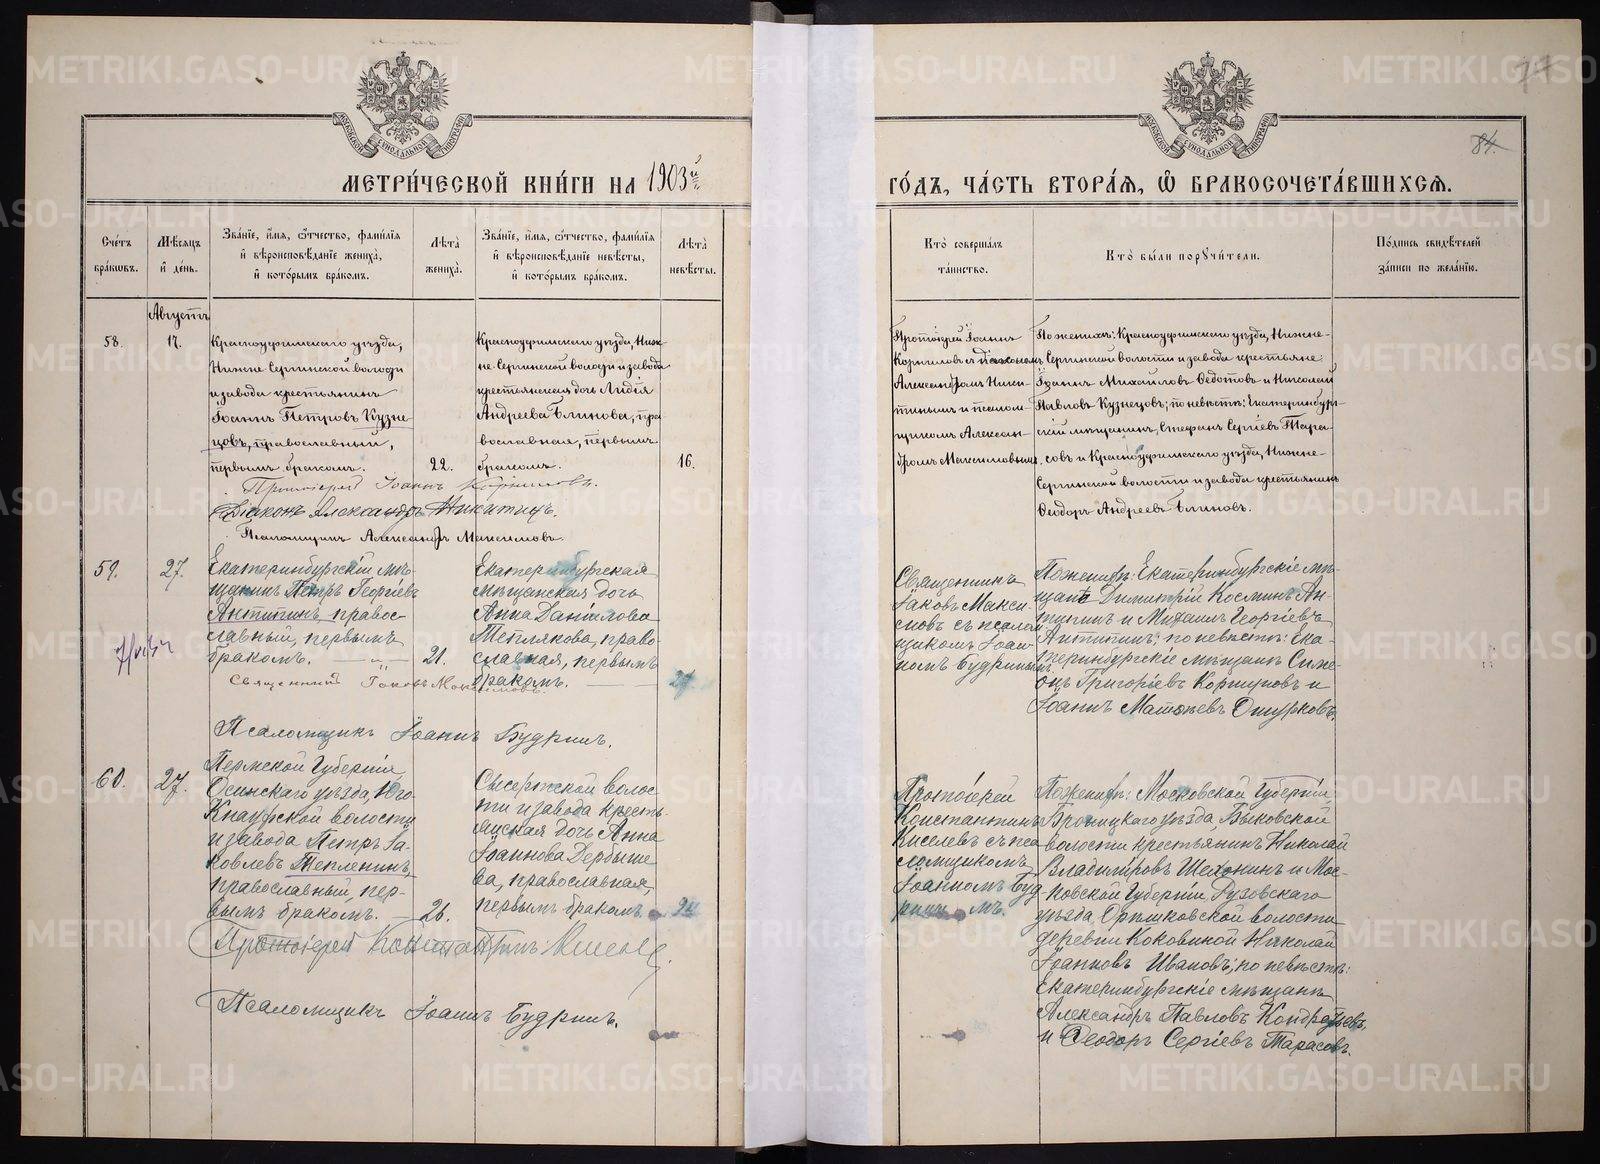 МЕТРИ́ЧЕСКОЙ КНИ́ГИ НА 1903й
ГО́ДЪ, ЧА́СТЬ ВТОРА́Я, Ѡ҆ БРАКОСОЧЕТА́ВШИХСЯ.
Сче́тъ бра́ковъ.
Мѣ́сяцъ и҆ де́нь.
Зва́нїе, и҆́мя, ѻ҆́тчество, фами́лїя и҆ вѣроисповѣ́данїе жениха̀, и҆ кото́рымъ бра́комъ.
Лѣ́та жениха̀.
Зва́нїе, и҆́мя, ѻ҆́тчество, фами́лїя и҆ вѣроисповѣ́данїе невѣ́сты, и҆ кото́рымъ бра́комъ.
Лѣ́та невѣ́сты.
Кто̀ соверша́лъ та́инство.
Кто̀ бы́ли порꙋчи́тели.
По́дпись свидѣ́телей за́писи по жела́нїю.
84.
Августъ
58.
17.
Красноуфимскаго уѣзда,
Нижне Сергинской волости
и завода крестьянинъ
Іоаннъ Петровъ Кузне-
цовъ, православный,
первымъ бракомъ.
22.
Красноуфимскаго уѣзда, Ниж-
не Сергинской волости и завода
крестьянская дочь Лидія
Андреева Блинова, пра
вославная, первымъ
бракомъ.
16.
Протоіерей Іоаннъ
Корниловъ съ діакономъ
Александромъ Ники-
тинымъ и псалом-
щикомъ Алексан-
дромъ Максимовымъ.
По женихѣ: Красноуфимскаго уѣзда, Нижне-
Сергинской волости и завода крестьяне
Іоаннъ Михайловъ Ѳедотовъ и Николай
Павловъ Кузнецовъ; по невѣстѣ: Екатеринбург-
скій мѣщанинъ, Стефанъ Сергіевъ Тара-
совъ и Красноуфимскаго уѣзда, Нижне-
Сергинской волости и завода крестьянинъ
Ѳеодоръ Андреевъ Блиновъ.
Протоіерей Іоаннъ Корниловъ.
Діаконъ Александръ Никитинъ.
Псаломщикъ Александръ Максимовъ.
59.
27.
Екатеринбургскій мѣ-
щанинъ Петръ Георгіевъ
Антипинъ, правос-
лавный, первымъ
бракомъ.
21.
Екатеринбургская
мѣщанская дочь
Анна Даніилова
Теплякова, право-
славная, первымъ
бракомъ.
Священникъ
Іаковъ Макси-
мовъ съ псалом
щикомъ Іоан-
номъ Будринымъ
По женихѣ: Екатеринбургскіе мѣ-
щане Димитрій Косминъ Ан-
типинъ и Михаилъ Георгіевъ
Антипинъ; по невѣстѣ: Ека-
теринбургскіе мѣщане Симе-
онъ Григорьевъ Коршуновъ и
Іоаннъ Матѳеевъ Ошурковъ.
Священникъ Іаковъ Максимовъ.
Псаломщикъ Іоаннъ Будринъ.
60.
27.
Пермской Губерніи,
Осинскаго уѣзда, Юго-
Кнауфской волости
и завода Петръ Іа-
ковлевъ Тепленинъ,
православный, пер-
вымъ бракомъ.
26.
Сысертской волос-
ти и завода кресть-
янская дочь Анна
Іоаннова Дербыше
ва, православная,
первымъ бракомъ.
Протоіерей
Константинъ
Киселевъ съ пса
ломщикомъ
Іоанномъ Буд
По женихѣ: Московской Губерніи
Бронницкаго уѣзда, Быковской
волости крестьянинъ Николай
Владиміровъ Шелонинъ и Мос-
ковской Губерніи, Рузовскаго
уѣзда, Орѣшковской волости
деревни Коковиной Николай
Іоанновъ Ивановъ; по невѣстѣ:
Екатеринбургскіе мѣщане
Александръ Павловъ Кондратьевъ,
и Ѳеодоръ Сергіевъ Тарасовъ.
Протоіерей Константинъ Киселевъ.
Псаломщикъ Іоаннъ Будринъ.